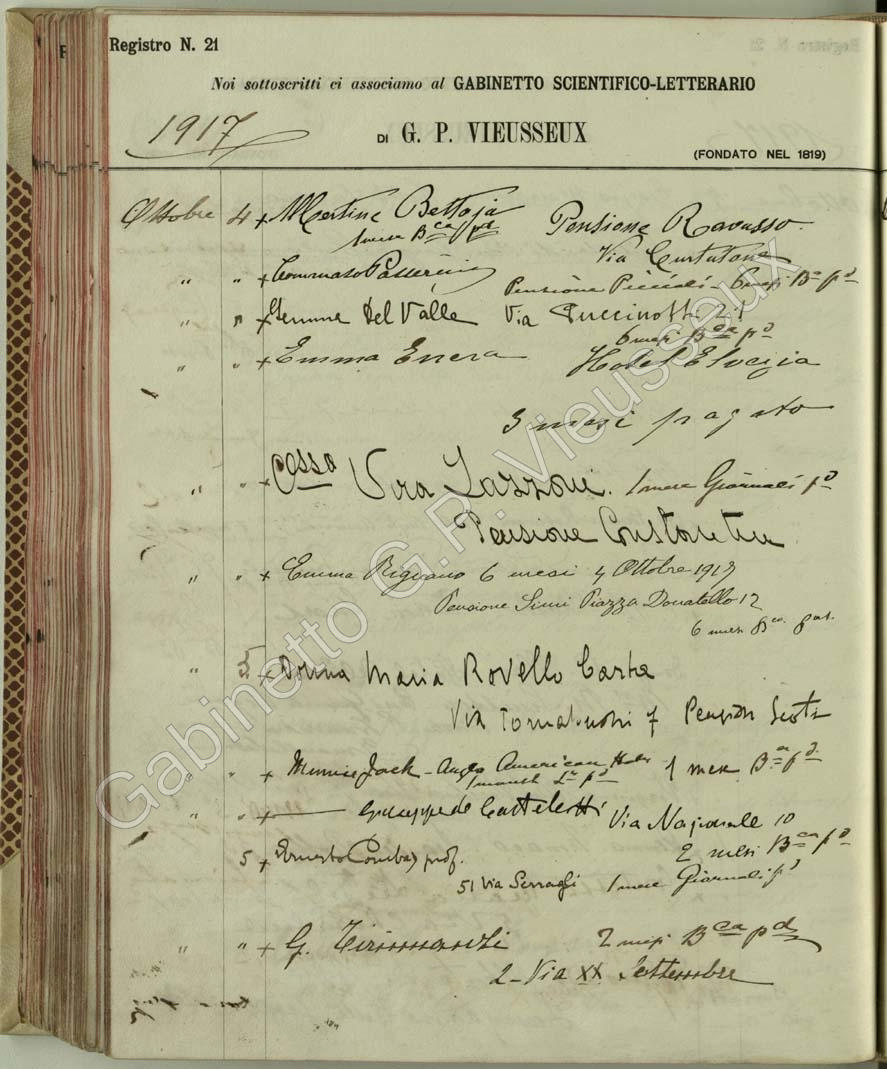 Registro N. 21
Noi sottoscritti ci associamo al GABINETTO SCIENTIFICO-LETTERARIO
1917
DI G. P. VIEUSSEUX
(FONDATO NEL 1819)
Ottobre 4 + Bettoja Pensione
1 mese Bca pd Via Curtatone
" " + Tommaso Passerini
Pensione Piccioli - 6 mesi Bca pd
" " + Del Valle Via Puccinotti 21
6 mesi Bca pd
" " + Emma Errera Hotel Elvezia
3 mesi pagato
" " + Cessa Lazzoni. 1 mese Giornali pd
Pensione
" " + Emma Rignano 6 mesi 4 Ottobre 1917
Pensione Simi Piazza Donatello 12
6 mesi Bca
" 5 + Donna Maria Rovello
Via Tornabuoni 7
" " + Minnie Jack - Anglo American Hotel 1 mese Bca pd
1 month pd
" " + Giuseppe de Via Nazionale 10
2 mesi Bca pd
5 + Ernesto prof.
51 Via Serragli 1 mese Giornali pd
" " + G. 2 mesi Bca pd
2 - Via XX Settembre
Gabinetto G.P. Vieusseux